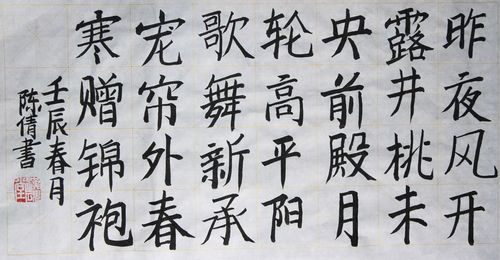 昨夜风开
露井桃未
央前殿月
轮高平阳
歌舞新承
宠帘外春
寒赠锦袍
壬辰春月
陈倩书